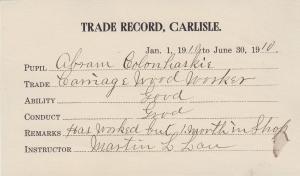 TRADE RECORD, CARLISLE.
Jan. 1, 1910 to June 30, 1910.
PUPIL Abram Colonhaskie
TRADE Carriage Wood Worker
ABILITY Good
CONDUCT Good
REMARKS Has worked but 1 month in Shop
INSTRUCTOR Martin L Lau